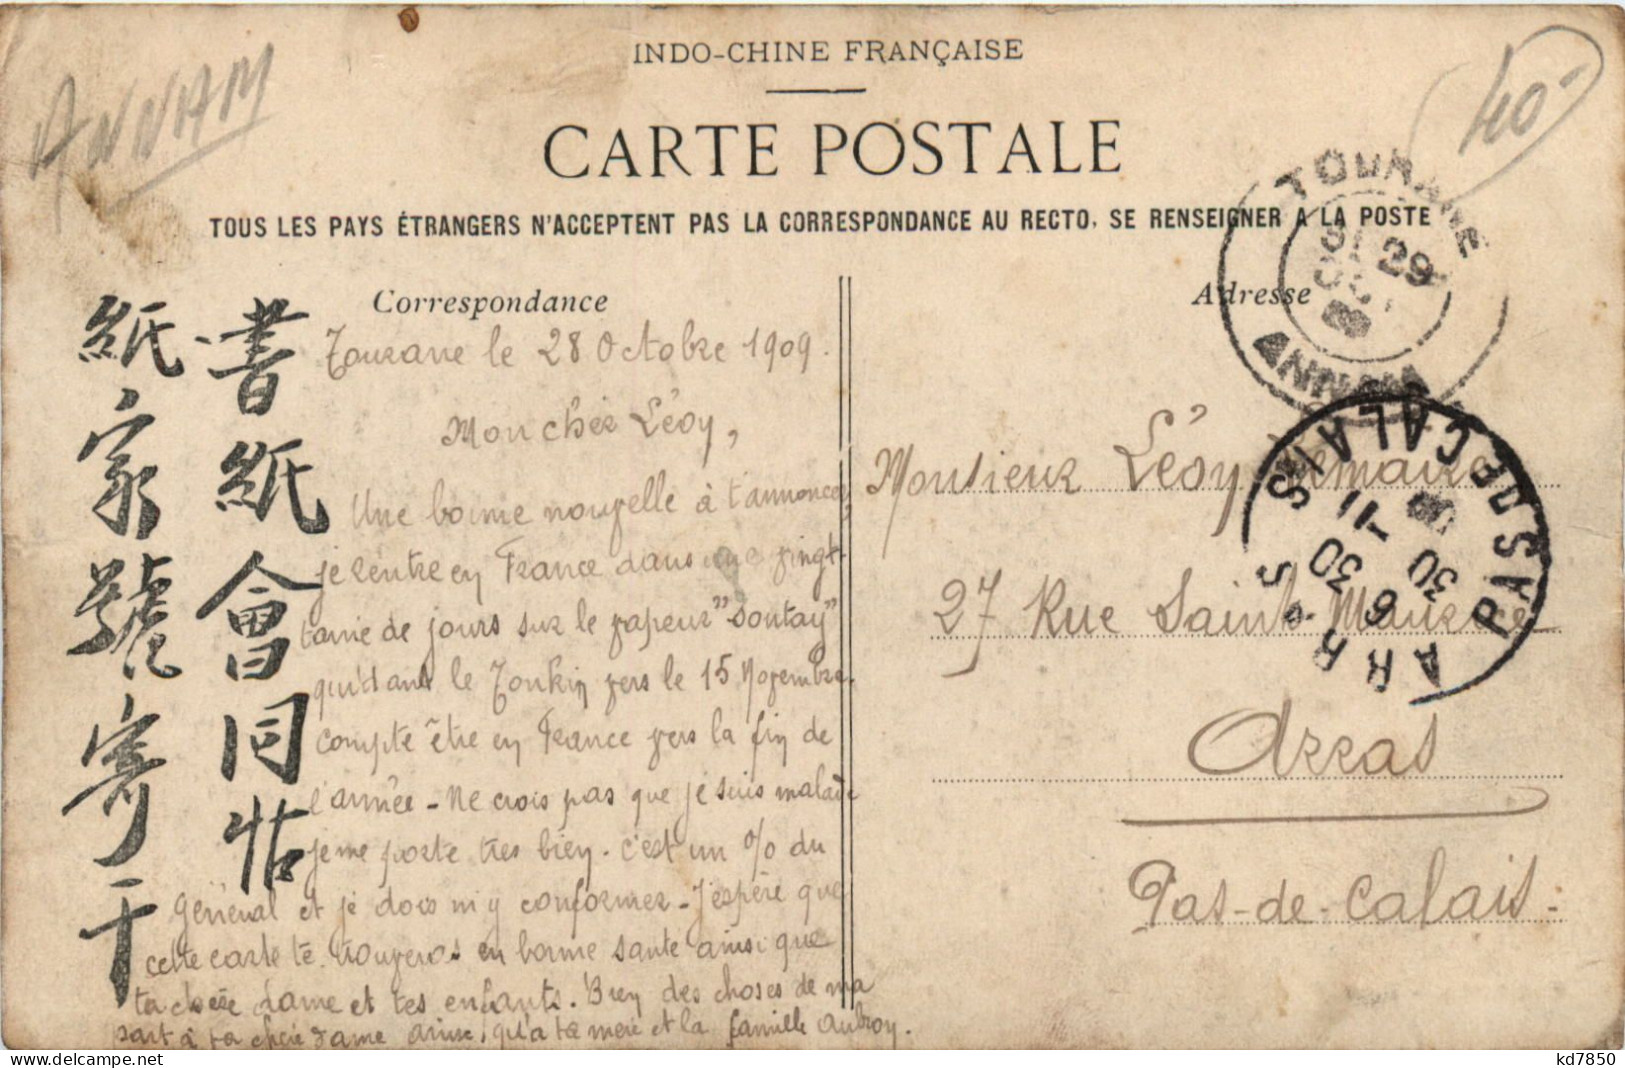 ANNAM
40-
INDO-CHINE FRANÇAISE
CARTE POSTALE
TOUS LES PAYS ÉTRANGERS N'ACCEPTENT PAS LA CORRESPONDANCE AU RECTO, SE RENSEIGNER A LA POSTE
TOURANE
29
ANNAM
Correspondance
Adresse
書紙會同帖
紙家號寄于
Tourane le 28 Octobre 1909.
Mon cher Léoy,
Une bonne nouvelle à t'annoncer,
je rentre en France dans une vingt-
taine de jours sur le vapeur "Sontay"
qui dans le Tonkin vers le 15 Novembre.
compte être en France vers la fin de
l'année - Ne crois pas que je suis malade
je me porte très bien. C'est un % du
Général et je dois m'y conformer - J'espère que
cette carte te trouveras en bonne santé ainsi que
ta chère dame et tes enfants. Bien des choses de ma
part à ta chère dame ainsi qu'à ta mère et la famille Aubroy.
Monsieur Léoy Lemaire
27 Rue Saint-Maurice
Arras
Pas-de-Calais-
ARRAS
PAS DE CALAIS
6 30
30 -11
09
kd7850